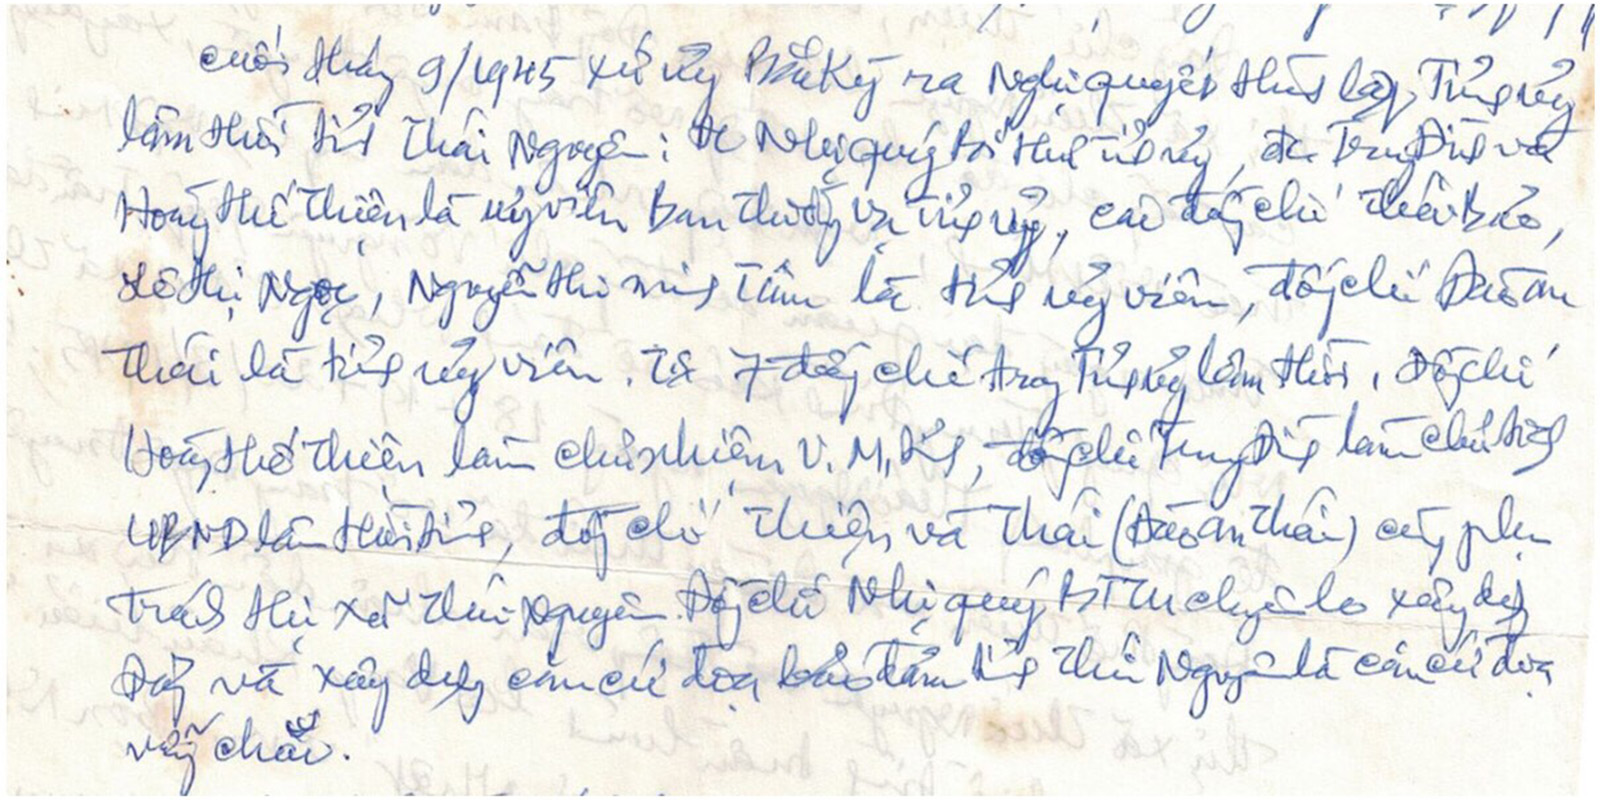 cuối tháng 9/1945 xứ ủy Bắc Kỳ ra Nghị quyết thành lập Tỉnh ủy
lâm thời tỉnh Thái Nguyên: đc Nhị Quý bí thư tỉnh ủy, đc Trung Đình và
Hoàng Thế Thiện là ủy viên Ban thường vụ tỉnh ủy, các đồng chí
Lê Thị Ngọc, Nguyễn Thị Minh Tâm là tỉnh ủy viên, đồng chí Đào An
Thái là tỉnh ủy viên. 7 đồng chí trong Tỉnh ủy lâm thời, đồng chí
Hoàng Thế Thiện làm chủ nhiệm V.M. tỉnh, đồng chí Trung Đình làm chủ tịch
UBND lâm thời tỉnh, đồng chí Thiện và Thái (Đào An Thái) cùng phụ
trách thị xã Thái Nguyên. Đồng chí Nhị Quý BTTU chuyên lo xây dựng
Đảng và xây dựng căn cứ địa bảo đảm tỉnh Thái Nguyên là căn cứ địa
vững chắc.